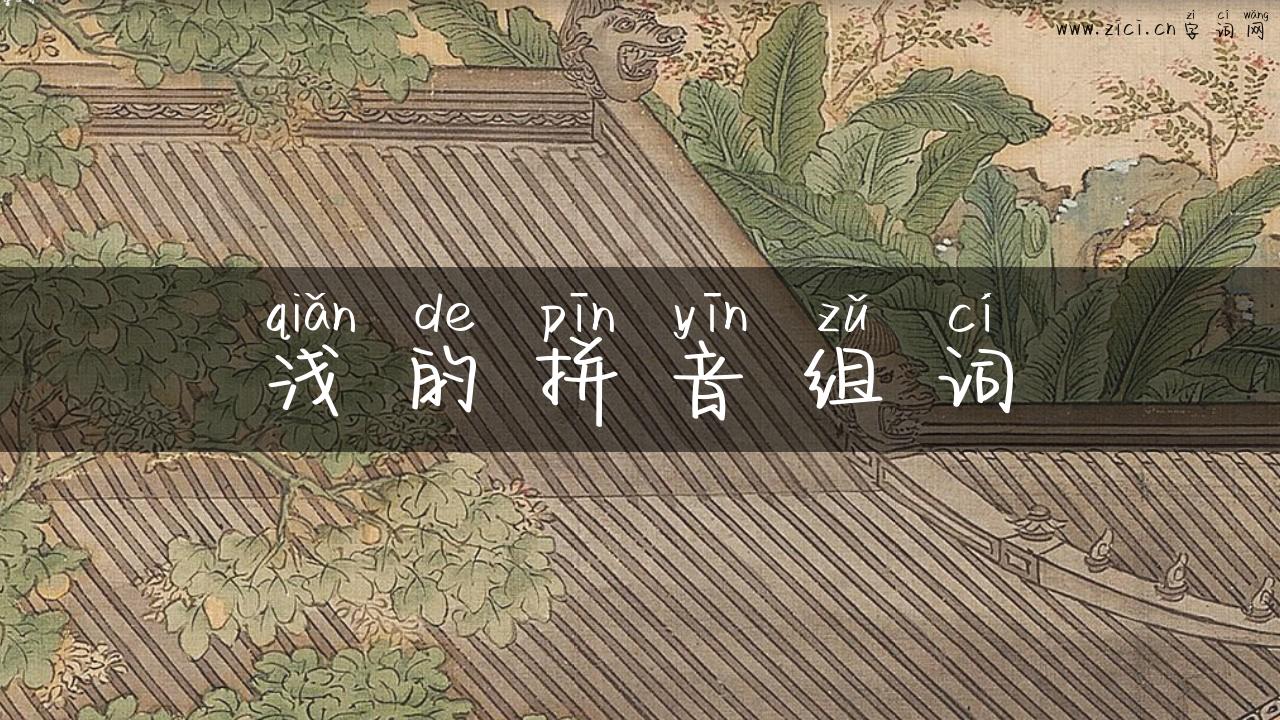 zì cí wǎng
www.zici.cn 字 词 网
qiǎn de pīn yīn zǔ cí
浅 的 拼 音 组 词